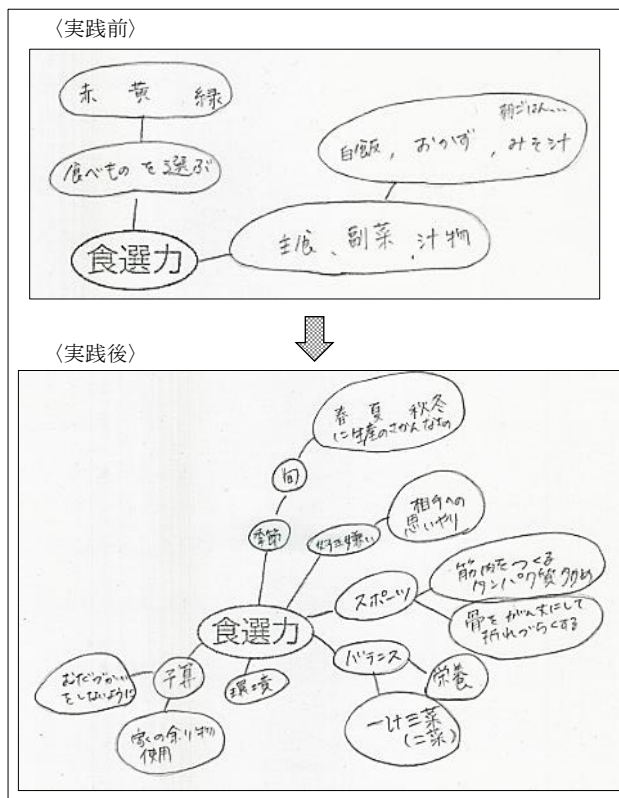 〈実践前〉
赤 黄 緑
食べものを選ぶ
食選力
朝ごはん…
白飯, おかず, みそ汁
主食、副菜、汁物
〈実践後〉
春 夏 秋冬
に生産のさかんなもの
旬
季節
好き嫌い
相手への
思いやり
スポーツ
筋肉をつくる
タンパク質多め
骨をがん丈にして
折れづらくする
食選力
バランス
栄養
一汁三菜
(二菜)
環境
予算
むだづかい
をしないように
家の余り物
使用